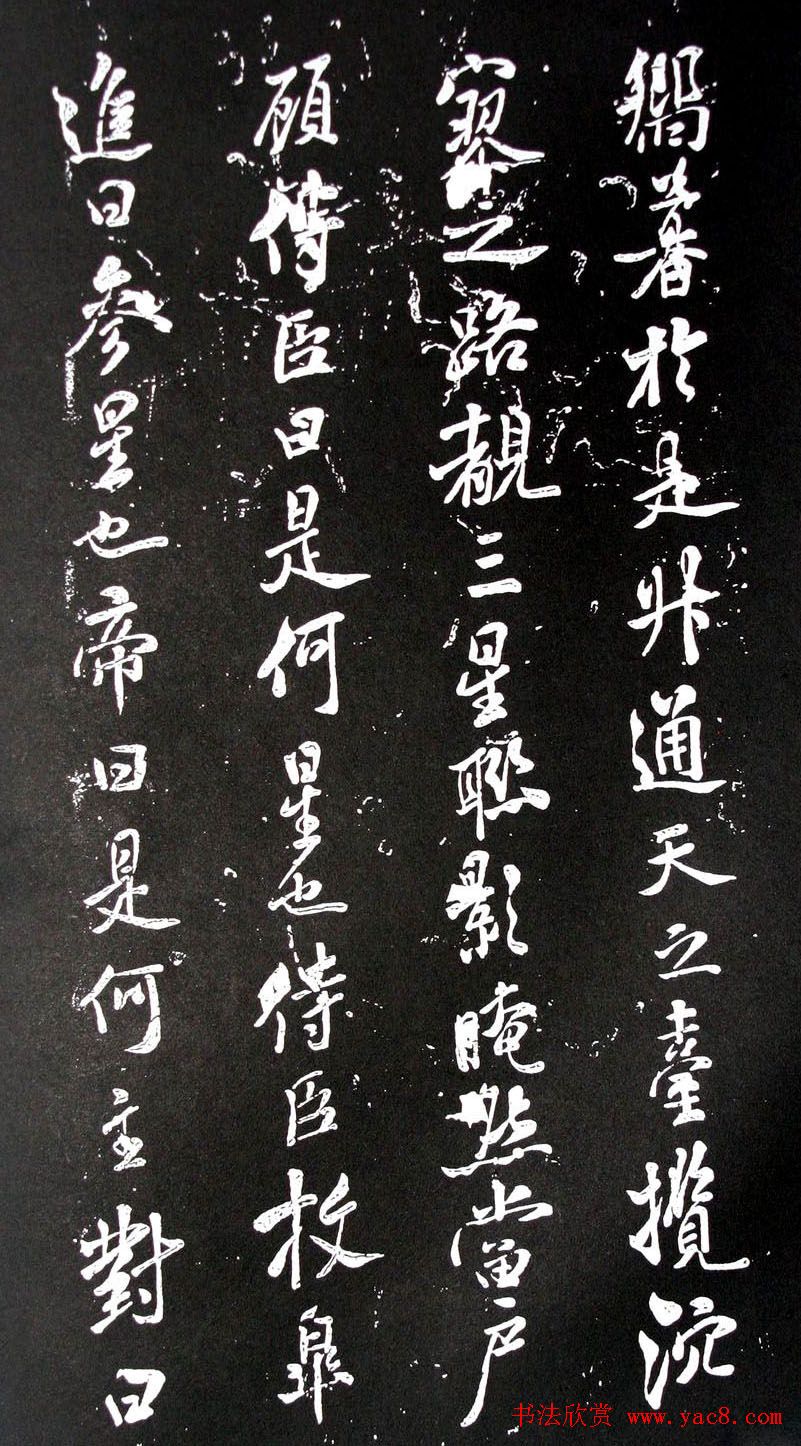 嚮暮於是升通天之臺攬沉
寥之路覩三星聯影晻然當戶
顧侍臣曰是何星也侍臣枚皋
進曰參星也帝曰是何主對曰
书法欣赏 www.yac8.com